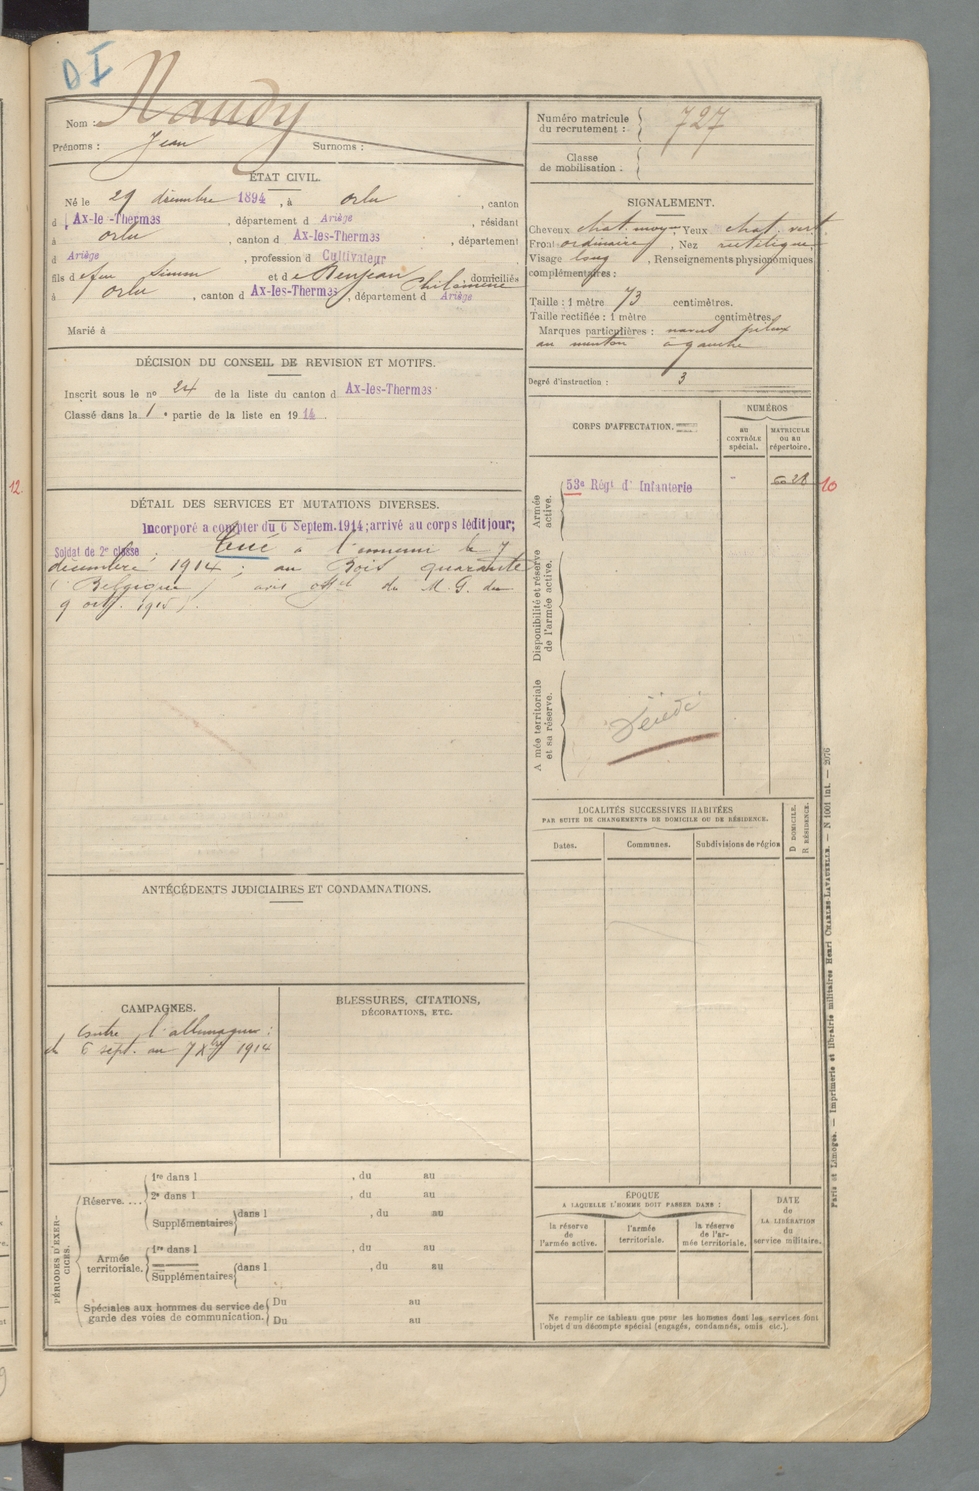 D I
Naudy
Nom :
Prénoms : Jean Surnoms :
Numéro matricule du recrutement : 727
Classe de mobilisation :
ÉTAT CIVIL.
Né le 29 décembre 1894, à Orlu, canton
d Ax-les-Thermes, département d Ariège, résidant
à Orlu, canton d Ax-les-Thermes, département
d Ariège, profession d Cultivateur
fils de feu Simon et de Philomène, domiciliés
à Orlu, canton d Ax-les-Thermes, département d Ariège
Marié à
SIGNALEMENT.
Cheveux chat. moyen, Yeux chat. vert
Front ordinaire, Nez rectiligne
Visage long, Renseignements physiognomiques
complémentaires :
Taille : 1 mètre 73 centimètres.
Taille rectifiée : 1 mètre centimètres
Marques particulières : naevus pileux
au menton à gauche
Degré d'instruction : 3
DÉCISION DU CONSEIL DE REVISION ET MOTIFS.
Inscrit sous le nº 24 de la liste du canton d Ax-les-Thermes
Classé dans la 1e partie de la liste en 1914
DÉTAIL DES SERVICES ET MUTATIONS DIVERSES.
Incorporé a compter du 6 Septem. 1914; arrivé au corps lédit jour;
Soldat de 2e classe
Tué à l'ennemi le 7
décembre 1914; au Bois quarante
(Belgique) avis offel du M. G. du
9 1915).
CORPS D'AFFECTATION.
NUMÉROS
au CONTRÔLE spécial.
MATRICULE ou au répertoire.
Armée active.
53e Régt d' Infanterie
6028
10
12.
Disponibilité et réserve de l'armée active.
Armée territoriale et sa réserve.
Décédé
LOCALITÉS SUCCESSIVES HABITÉES
PAR SUITE DE CHANGEMENTS DE DOMICILE OU DE RÉSIDENCE.
Dates. Communes. Subdivisions de région
D DOMICILE.
R RÉSIDENCE.
ANTÉCÉDENTS JUDICIAIRES ET CONDAMNATIONS.
CAMPAGNES.
Contre l'allemagne :
du 6 sept. au 7 Xbre 1914
BLESSURES, CITATIONS,
DÉCORATIONS, ETC.
PÉRIODES D'EXERCICES.
Réserve....
1re dans l , du au
2e dans l , du au
Supplémentaires dans l , du au
Armée territoriale.
1re dans l , du au
Supplémentaires dans l , du au
Spéciales aux hommes du service de
garde des voies de communication.
Du au
Du au
ÉPOQUE
A LAQUELLE L'HOMME DOIT PASSER DANS :
la réserve de l'armée active.
l'armée territoriale.
la réserve de l'armée territoriale.
DATE de LA LIBÉRATION du service militaire.
Ne remplir ce tableau que pour les hommes dont les services font
l'objet d'un décompte spécial (engagés, condamnés, omis etc.).
Paris et Limoges. — Imprimerie et librairie militaires Henri CHARLES-LAVAUZELLE. — N 1001 int. — 2076